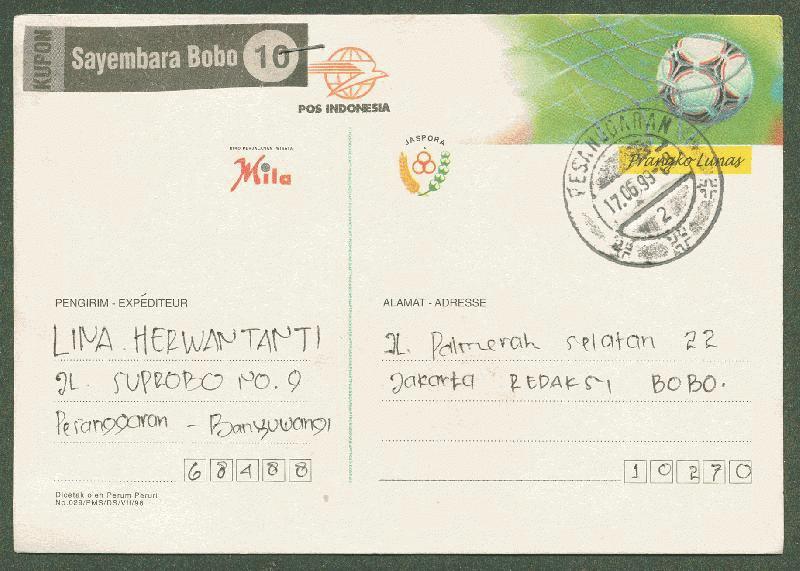 KUPON
Sayembara Bobo 10
POS INDONESIA
BIRO PERJALANAN WISATA
Mila
JASPORA
PESANGGARAN
17.06.99
2
Prangko Lunas
PENGIRIM - EXPÉDITEUR
LINA HERWANTANTI
JL. SUPROBO NO. 9
Pesanggaran - Banyuwangi
68488
Dicetak oleh Perum Peruri
No.029/PMS/DS/VII/96
ALAMAT - ADRESSE
JL. Palmerah selatan 22
Jakarta REDAKSI BOBO.
10270